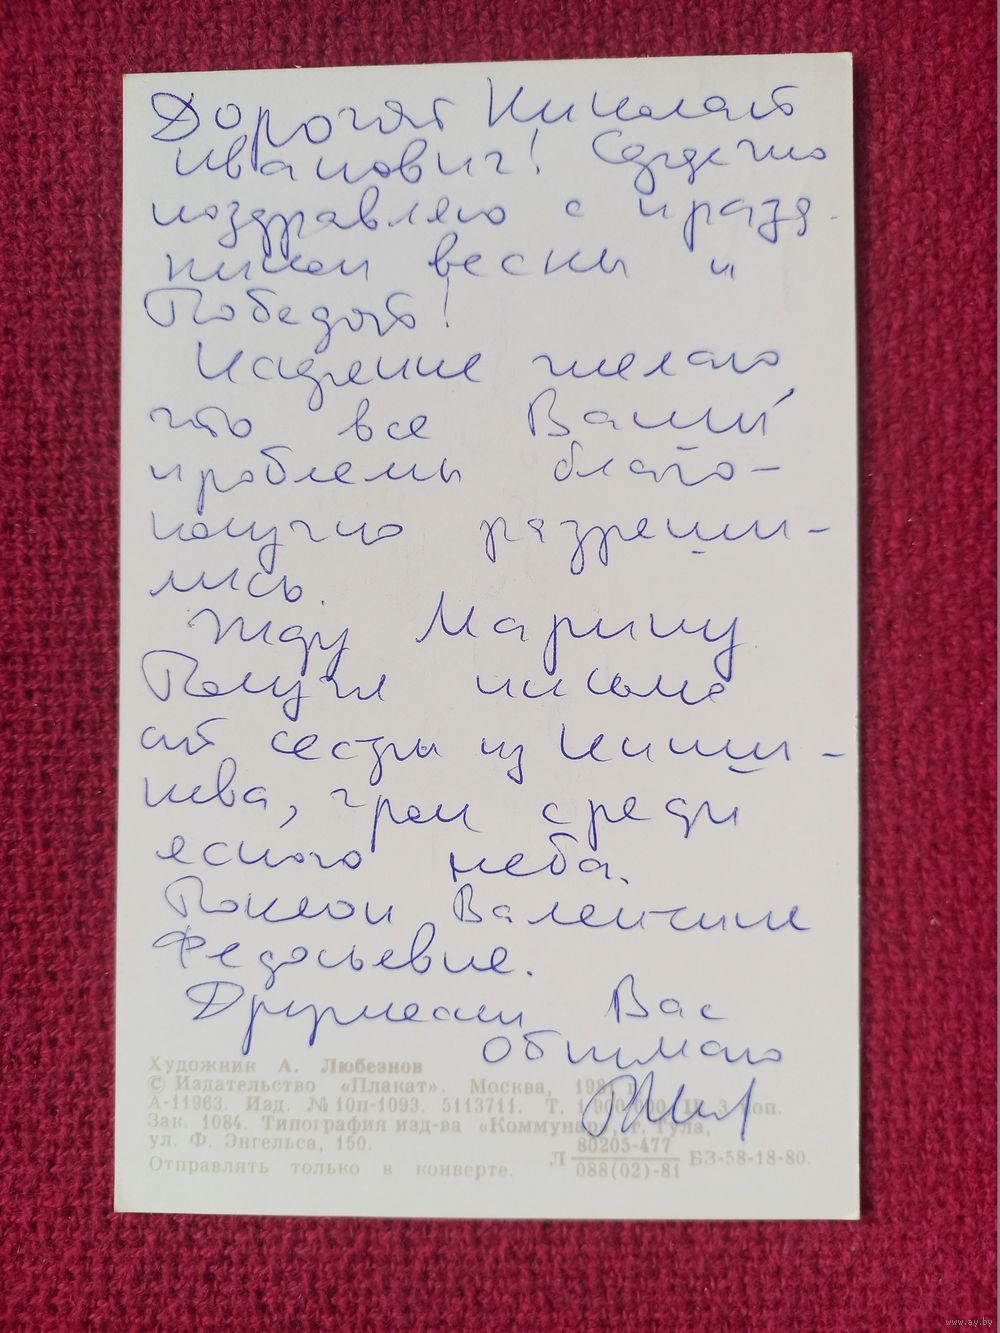 Дорогой Николай
Иванович! Сердечно
поздравляю с празд-
никами весны и
Победой!
Искренне желаю,
что все Ваши
проблемы благо-
получно разреши-
лись.
Жду Марину
Получил письмо
от сестры из Киши-
нева, гром среди
ясного неба.
Поклон Валентине
Федосьевне.
Дружески Вас
обнимаю
Художник А. Любезнов
© Издательство «Плакат». Москва, 1981 г.
А-11963. Изд. № 10п-1093. 5113711. Т. 1 900 000. Ц. 3 коп.
Зак. 1084. Типография изд-ва «Коммунар», г. Тула,
ул. Ф. Энгельса, 150.
Отправлять только в конверте.
Л 80205-477 БЗ-58-18-80.
088(02)-81
www.ay.by